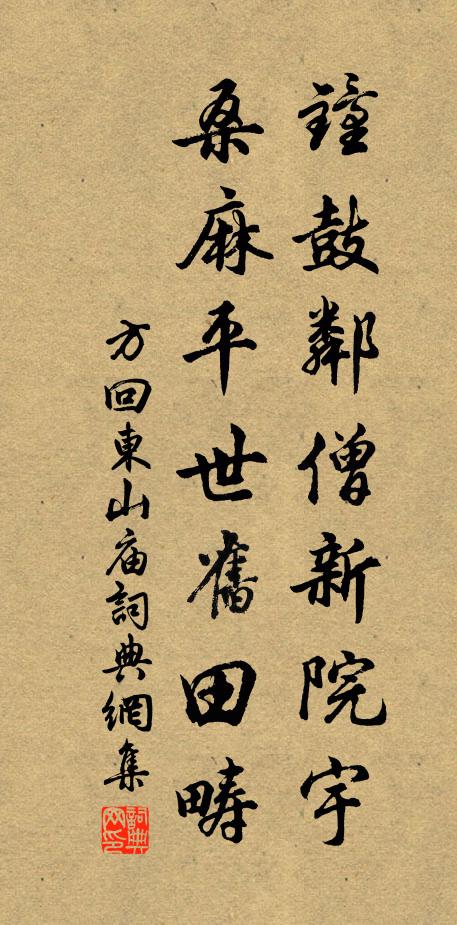 鐘鼓鄰僧新院宇
桑麻平世舊田疇
方回東山庙詞典網集
詞典网印